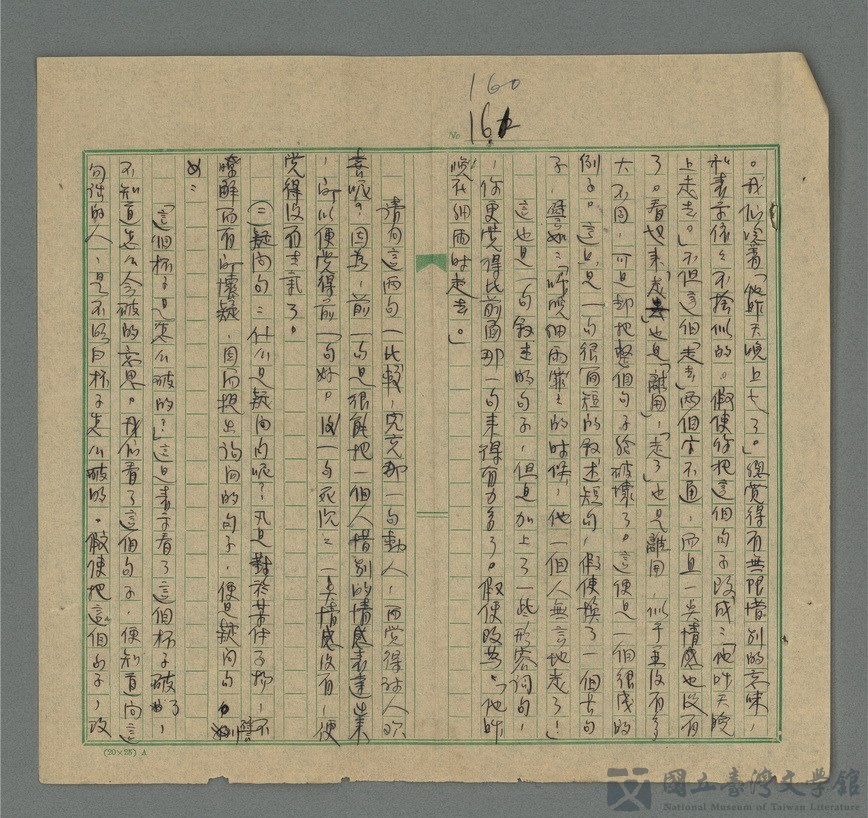 160
161
No.
。我們唸着「他昨天晚上走了」。總覺得有無限惜別的意味,
和表示依々不捨似的。假使你把這個句子改成:「他昨天晚
上走去。」不但這個「走去」兩個字不通,而且一点情感也沒有
了。看起來「走去」也是「離開」,「走了」也是離開,似乎並沒有多
大不同,可是却把整個句子給破壞了。這便是一個很淺的
例子。這只是一句很簡短的敘述短句,假使換了一個長句
子,譬如:「昨晚細雨霏々的時候,他一個人無言地走了!」
這也是一句敘述的句子,但是加上了一些形容詞句,
,你更覺得比前面那一句來得有力多了。假使改為:「他昨
晚在細雨時走去。」
請向這兩句一比較,究竟那一句動人,而覺得討人歡
喜呢?因為,前一句是很能把一個人惜別的情感表達出來
,所以便覺得前一句好。後一句死沉々,一点情感沒有,便
覺得沒有生氣了。
(二)疑問句:什么是疑問句呢?凡是對於某件事物,不
瞭解而有所懷疑,因而提出詢問的句子,便是疑問句。譬
如:
「這個杯子是怎么破的?」這是表示看了這個杯子破了,
不知道怎么会破的意思。我們看了這個句子,便知道問這
句話的人,是不明白杯子怎么破的。假使把這個句子,改
(20×25) A
國立臺灣文學館
National Museum of Taiwan Literature